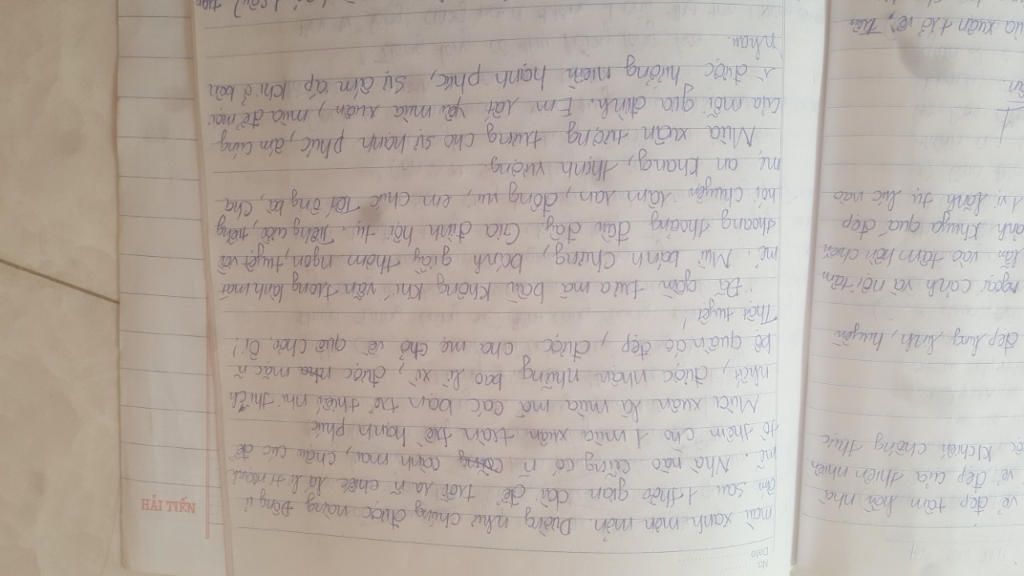 No.
Date
màu xanh mơn mởn. Dường như chúng được nàng Đông ủ
ấm sau 1 thời gian dài để trời là ñ chiếc lá li ti
mĩ. Nhà nào cũng có ñ cành mai, chậu cúc để
tô thêm cho 1 mùa xuân tràn trề hạnh phúc
Mùa xuân là mùa mà các bạn trẻ thiếu nhi thích
nhất, được nhận những bao lì xì, được mặc ñ
bộ quần áo đẹp, được cha mẹ chở về quê chơi ôi!
Thật tuyệt!
Đã gần trưa mà bầu không khí vẫn trong lành mát
mẻ. Mùi bánh chưng, bánh giầy thơm ngon, tuyệt vời
thoang thoảng đâu đây. Gia đình hội tụ. Tiếng cười, tiếng
nói chuyện làm lan, đông vui, em chúc Tết ông bà, cha,
mẹ an khang, thịnh vượng.
Mùa xuân tượng trưng cho sự hạnh phúc, ấm cúng
của mỗi gia đình. Em rất yêu mùa xuân, mùa để mọi
được hưởng niềm hạnh phúc, sự ấm áp khi ở bên
nhau.
HẢI TIẾN
vẻ đẹp tâm hồn nhà
vẻ đẹp của thiên nhiên
khách chống thực
đẹp lung linh, huyền
ngoại cảnh và nội tâm
lên vào tâm hồn
cảnh khuya quá đẹp
lúc nào
xuân trở về,